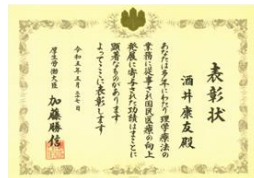 表彰状
酒井康友殿
あなたは多年にわたり理学療法の
業務に従事され国民医療の向上
発展に寄与された功績はまことに
顕著なものがあります
よってここに表彰します
令和五年五月三十七日
厚生労働大臣 加藤勝信